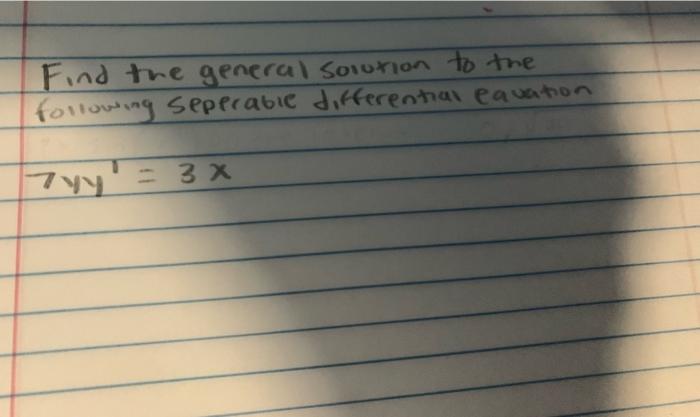 Find the general solution to the
following seperable differential equation
7yy' = 3x